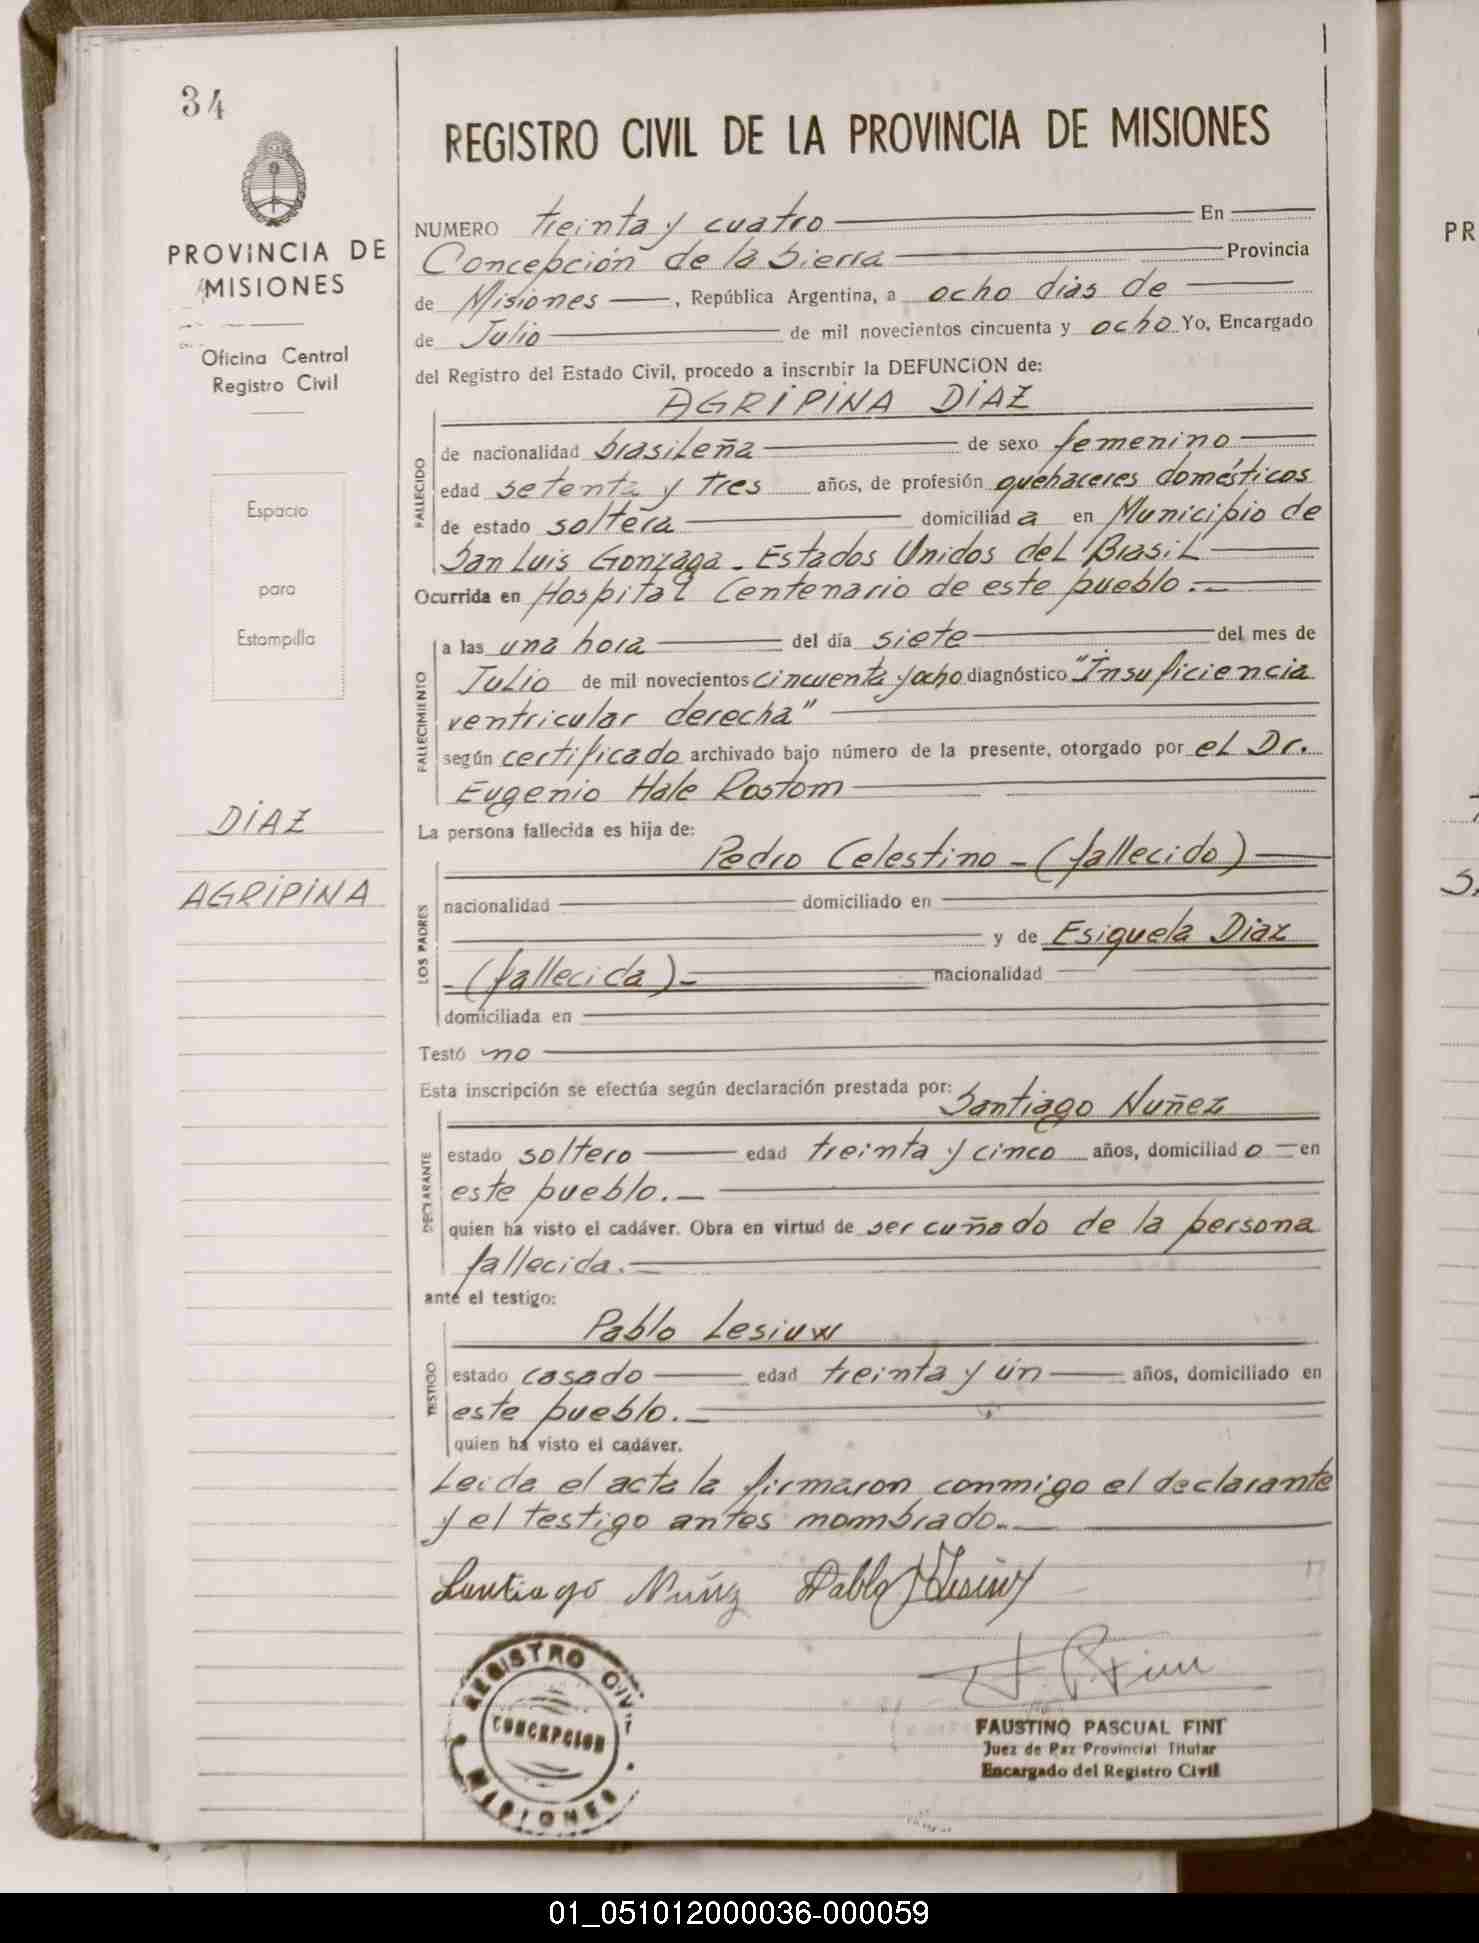 34
PROVINCIA DE
MISIONES
Oficina Central
Registro Civil
Espacio
para
Estampilla
DIAZ
AGRIPINA
REGISTRO CIVIL DE LA PROVINCIA DE MISIONES
NUMERO treinta y cuatro En
Concepción de la Sierra Provincia
de Misiones, República Argentina, a ocho dias de
de Julio de mil novecientos cincuenta y ocho Yo, Encargado
del Registro del Estado Civil, procedo a inscribir la DEFUNCION de:
AGRIPINA DIAZ
FALLECIDO
de nacionalidad brasileña de sexo femenino
edad setenta y tres años, de profesión quehaceres domésticos
de estado soltera domiciliada en Municipio de
San Luis Gonzaga - Estados Unidos del Brasil
Ocurrida en Hospital Centenario de este pueblo.-
FALLECIMIENTO
a las una hora del día siete del mes de
Julio de mil novecientos cincuenta y ocho diagnóstico "Insuficiencia
ventricular derecha"
según certificado archivado bajo número de la presente, otorgado por el Dr.
Eugenio Hale Rostom
La persona fallecida es hija de:
Pedro Celestino - (fallecido)
LOS PADRES
nacionalidad domiciliado en
y de Esiquela Diaz
- (fallecida) - nacionalidad
domiciliada en
Testó no
Esta inscripción se efectúa según declaración prestada por:
Santiago Nuñez
DECLARANTE
estado soltero edad treinta y cinco años, domiciliado en
este pueblo.-
quien ha visto el cadáver. Obra en virtud de ser cuñado de la persona
fallecida.-
ante el testigo:
Pablo Lesiuw
TESTIGO
estado casado edad treinta y ún años, domiciliado en
este pueblo.-
quien ha visto el cadáver.
Leida el acta la firmaron conmigo el declarante
y el testigo antes mombrado.-
Santiago Nuñez Pablo Lesiuw
REGISTRO CIVIL
CONCEPCION
MISIONES
FAUSTINO PASCUAL FINI
Juez de Paz Provincial Titular
Encargado del Registro Civil
PR
01_051012000036-000059